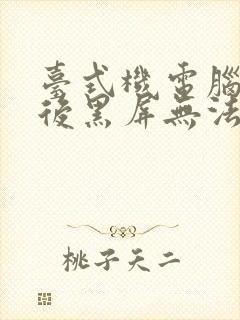 臺式機電腦
後黑屏無法
桃子天二